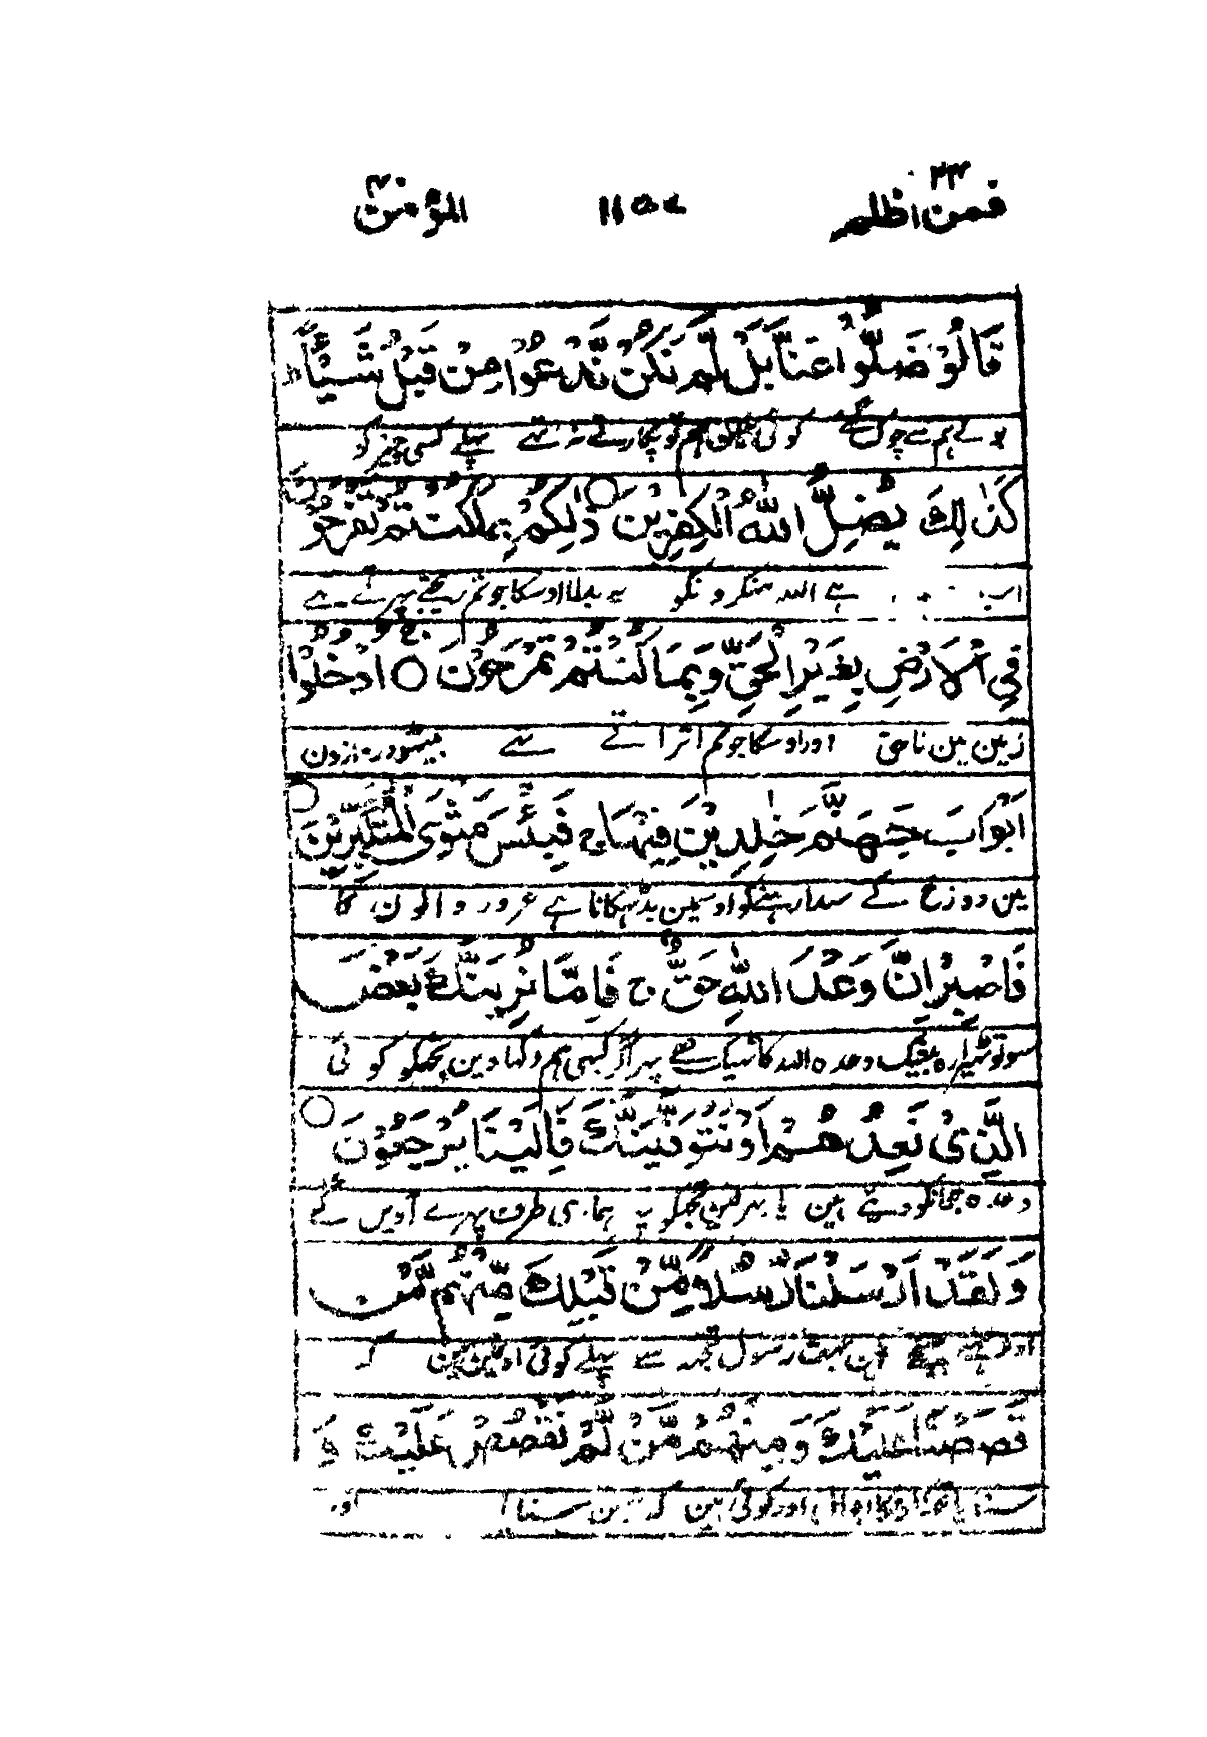 فمن اظلم ٢٤ ١١٥٧ المؤمن ٤٠
قَالُوْا ضَلُّوْا عَنَّا بَلْ لَّمْ نَكُنْ نَّدْعُوْا مِنْ قَبْلُ شَيْـًٔا ؕ
بولے ہم سے چوک گئے کوئی نہیں ہم تو پکارتے نہ تھے پہلے کسی چیز کو
كَذٰلِكَ يُضِلُّ اللّٰهُ الْكٰفِرِيْنَ ○ ذٰلِكُمْ بِمَا كُنْتُمْ تَفْرَحُوْنَ
ہے اللہ منکرونکو یہ بدلا اوسکا جو تم ریجھتے پھرتے تھے
فِي الْاَرْضِ بِغَيْرِ الْحَقِّ وَبِمَا كُنْتُمْ تَمْرَحُوْنَ ○ اُدْخُلُوْٓا
زمین مین ناحق اور اوسکا جو تم اتراتے تھے پیٹھو دروازون
اَبْوَابَ جَهَنَّمَ خٰلِدِيْنَ فِيْهَا ج فَبِئْسَ مَثْوَى الْمُتَكَبِّرِيْنَ ○
مین دوزخ کے سدا رہنے کو اوسمین بد ٹھکانا ہے غرور والون کا
فَاصْبِرْ اِنَّ وَعْدَ اللّٰهِ حَقٌّ ج فَاِمَّا نُرِيَنَّكَ بَعْضَ
سو تو ٹھہرا رہ بیشک وعدہ اللہ کا ٹھیک ہے پھر اگر کبھی ہم دکھا دین تجھکو کوئی
الَّذِيْ نَعِدُهُمْ اَوْ نَتَوَفَّيَنَّكَ فَاِلَيْنَا يُرْجَعُوْنَ ○
وعدہ جو انکو دیتے ہین یا بھر لین تجھکو پھر ہماری طرف پھرے آوین گے
وَلَقَدْ اَرْسَلْنَا رُسُلًا مِّنْ قَبْلِكَ مِنْهُمْ مَّنْ
اور ہمنے بھیجے ہین بہت رسول تجھہ سے پہلے کوئی اونمین ہین کہ
قَصَصْنَا عَلَيْكَ وَمِنْهُمْ مَّنْ لَّمْ نَقْصُصْ عَلَيْكَ وَ
سنایا تجھکو اونکا احوال اور کوئی ہین کہ نہین سنایا اور